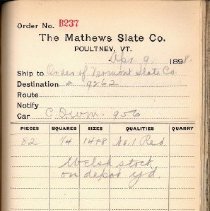 Order No. B237
The Mathews Slate Co.
POULTNEY, VT.
9, 1898
Ship to Order of Vermont Slate Co
Destination # 9862
Route
Notify
Car 906
PIECES SQUARES SIZES QUALITIES QUARRY
82 14 No 1 Red
Welsh stock
on depot yd.